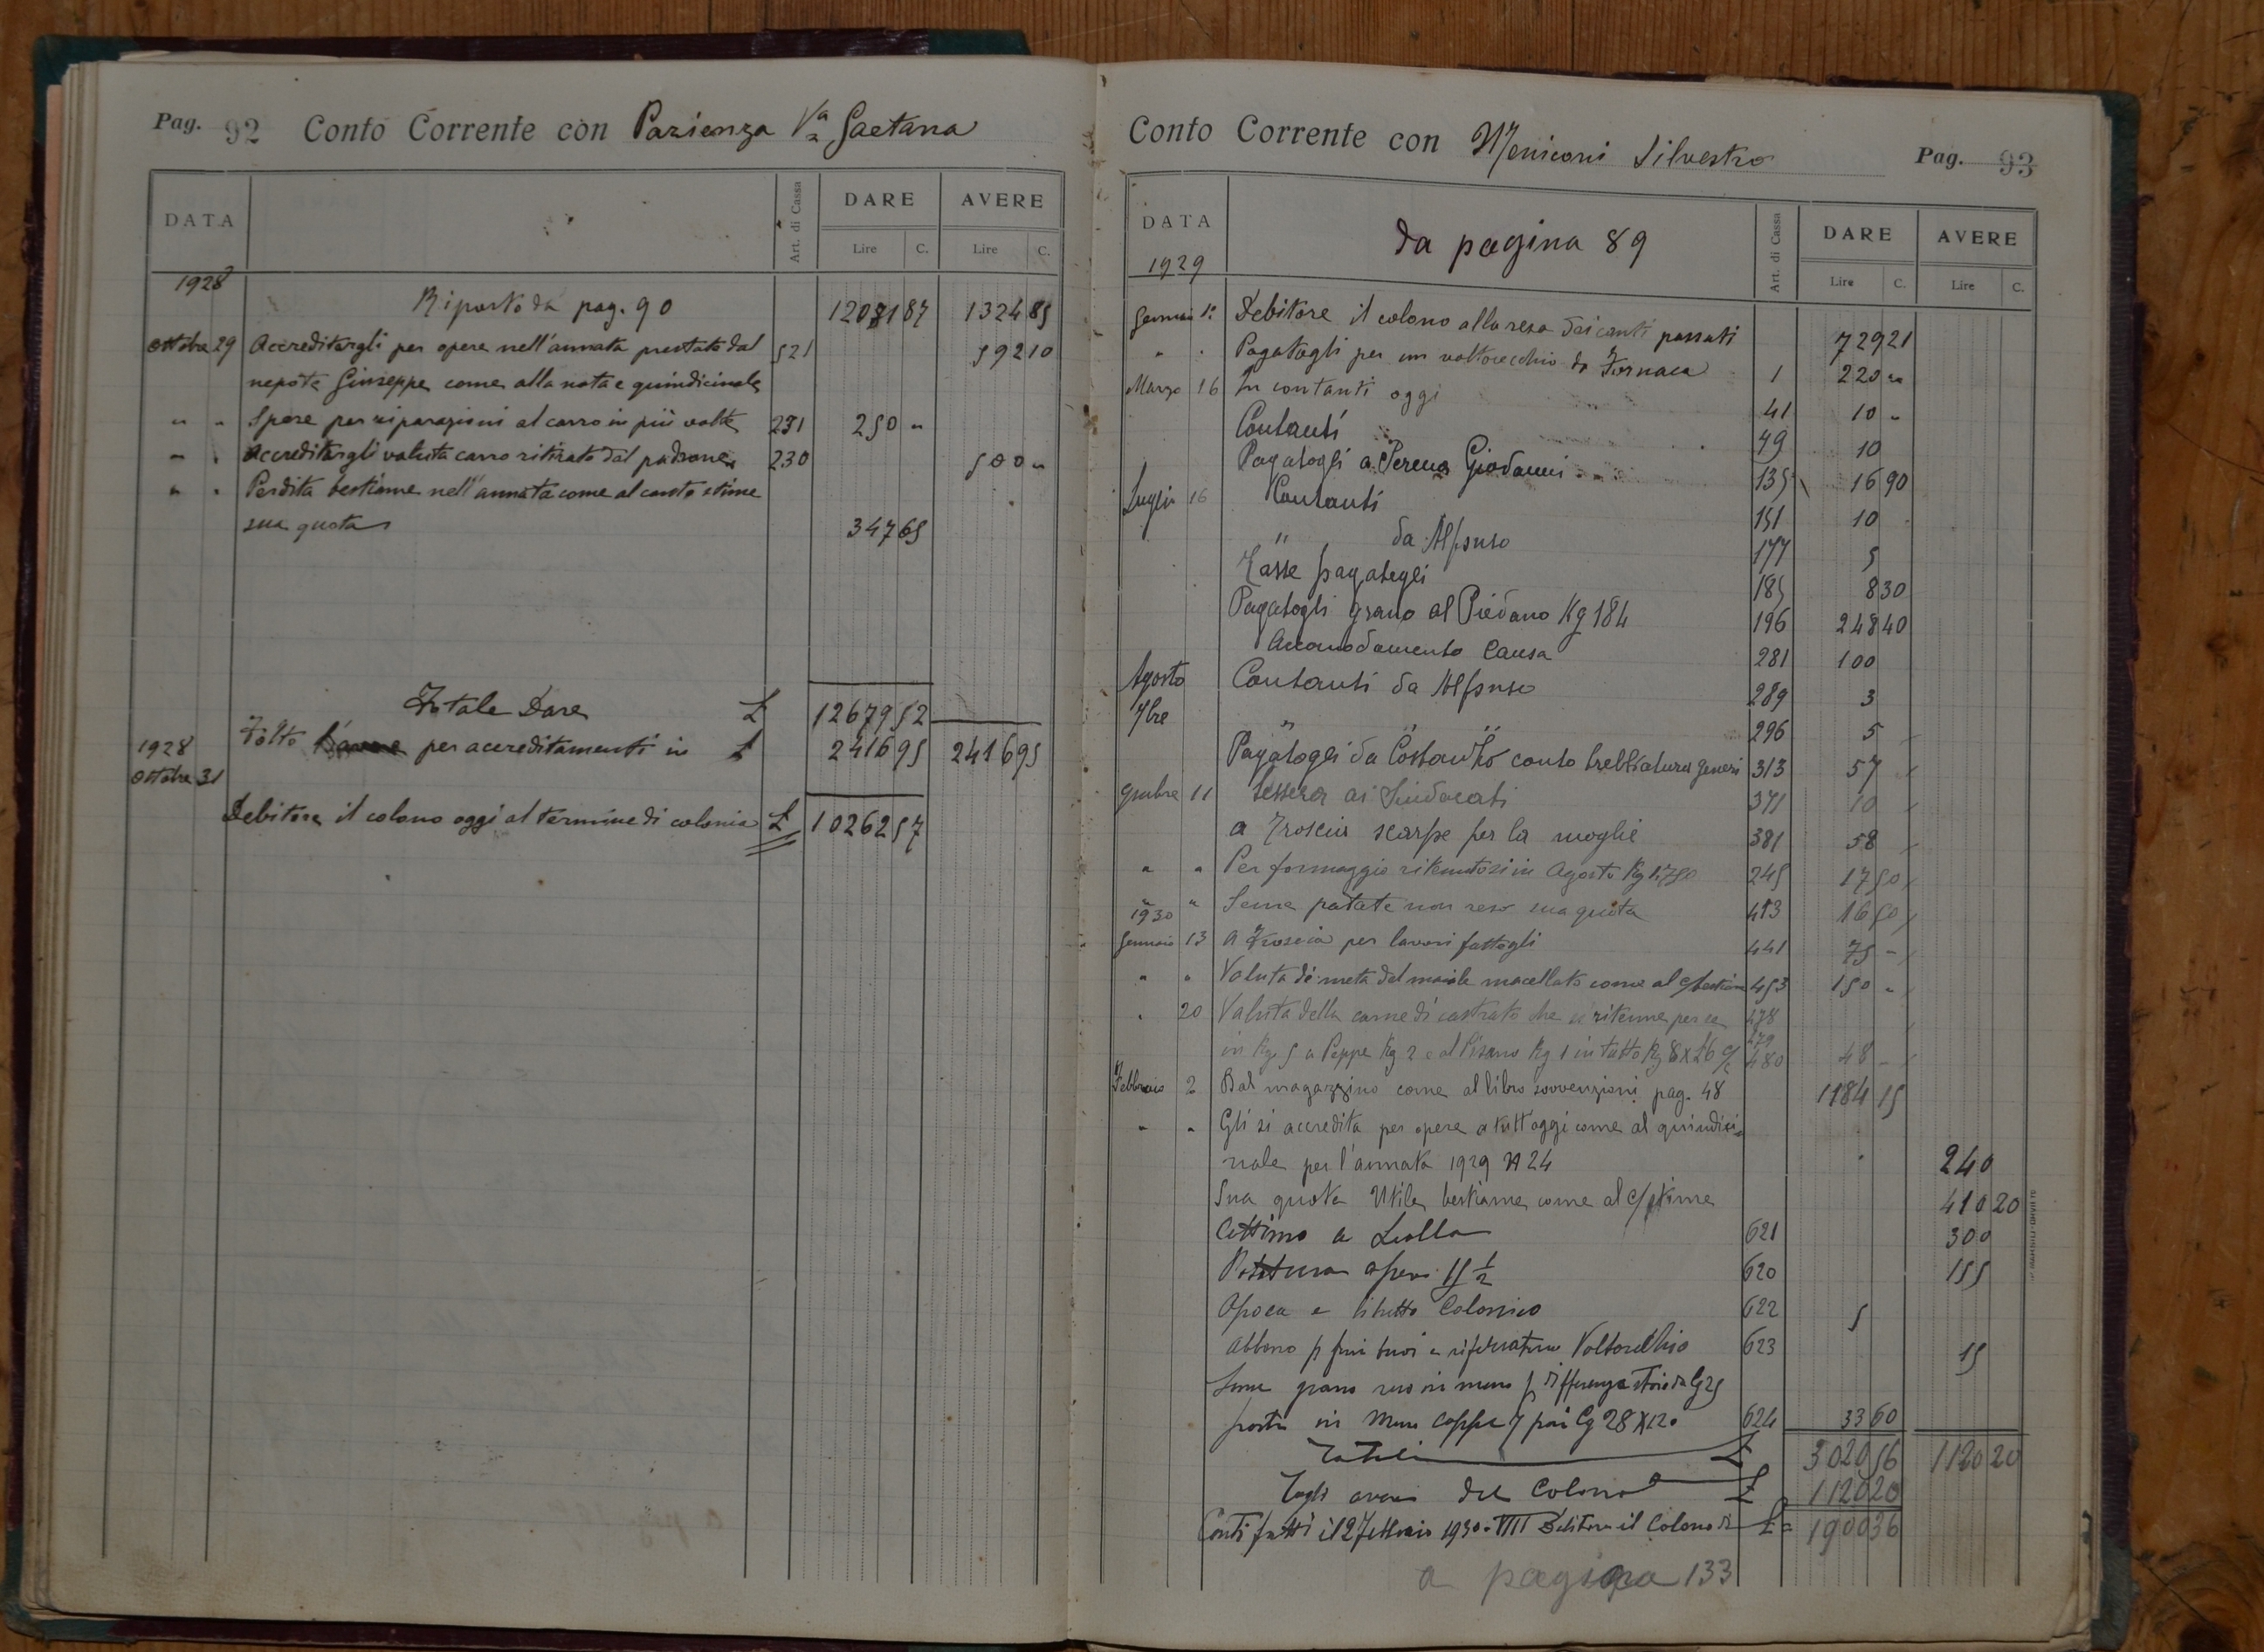 Pag. 92 Conto Corrente con Pazienza Va Gaetana
DATA Art. di Cassa DARE AVERE
Lire C. Lire C.
1928
Riporto da pag. 90 12081 87 1324 85
Ottobre 29 Accreditargli per opere nell'annata prestate dal 521 592 10
nepote Giuseppe come alla nota e quindicinale
" " Spese per riparazioni al carro in più volte 231 250 "
" " Accreditargli valuta carro ritirato dal padrone 230 500 "
" " Perdita bestiame nell'annata come al conto stime
sua quota 347 65
Totale Dare £ 12679 52
1928 Tolto per accreditamenti in £ 2416 95 2416 95
Ottobre 31
Debitore il colono oggi al termine di colonia £ 10262 57
Conto Corrente con Meniconi Silvestro Pag. 93
DATA da pagina 89 Art. di Cassa DARE AVERE
Lire C. Lire C.
1929
Gennaio 1° Debitore il colono alla resa dei conti passati 729 21
" " Pagatogli per un voltorecchio da Fornaca 1 220 "
Marzo 16 In contanti oggi 41 10 "
Contanti 49 10
Pagatogli a Perena Giovanni 135 16 90
Luglio 16 Contanti 151 10
" da Alfonso 177 5
Tasse pagategli 185 8 30
Pagatogli grano al Piedano Kg 184 196 248 40
Accomodamento Causa 281 100
Agosto Contanti da Alfonso 289 3
7bre " " " 296 5
Pagatogli da Costantino conto trebbiatura generi 313 57
9mbre 11 Tessera ai Sindacati 371 10
a Troscia scarpe per la moglie 381 58
" " Per formaggio ritenutosi in Agosto Kg 1.750 245 17 50
" " Seme patate non reso sua quota 413 16 50
1930
Gennaio 13 A Troscia per lavori fattogli 441 75 -
" " Valuta di metà del maiale macellato come al c/ bestiame 453 150 "
" 20 Valuta della carne di castrato che si ritenne per se 478
479
in Kg. 5 a Peppe Kg 2 e al Pisano Kg 1 in tutto Kg 8 x £6 c/c 480 48 -
Febbraio 2 Dal magazzino come al libro sovvenzioni pag. 48 1184 15
" " Gli si accredita per opere a tutt'oggi come al quindici=
nale per l'annata 1929 N 24 240
Sua quota Utile bestiame come al c/ stime 410 20
Cottimo a Lolla 621 300
Potatura opere 15 1/2 620 155
Opoca e libretto Colonico 622 5
Abbono p funi buoi e riferratura Voltorecchio 623 15
Seme grano reso in meno p differenza staio da Cg 25
posto in meno coppe 7 pari Cg 28 x 120 624 33 60
Totali £ 3020 56 1120 20
Togli avere del Colono £ 1120 20
Conti fatti il 2 Febbraio 1930 - VIII Debitore il Colono di £ = 1900 36
a pagina 133